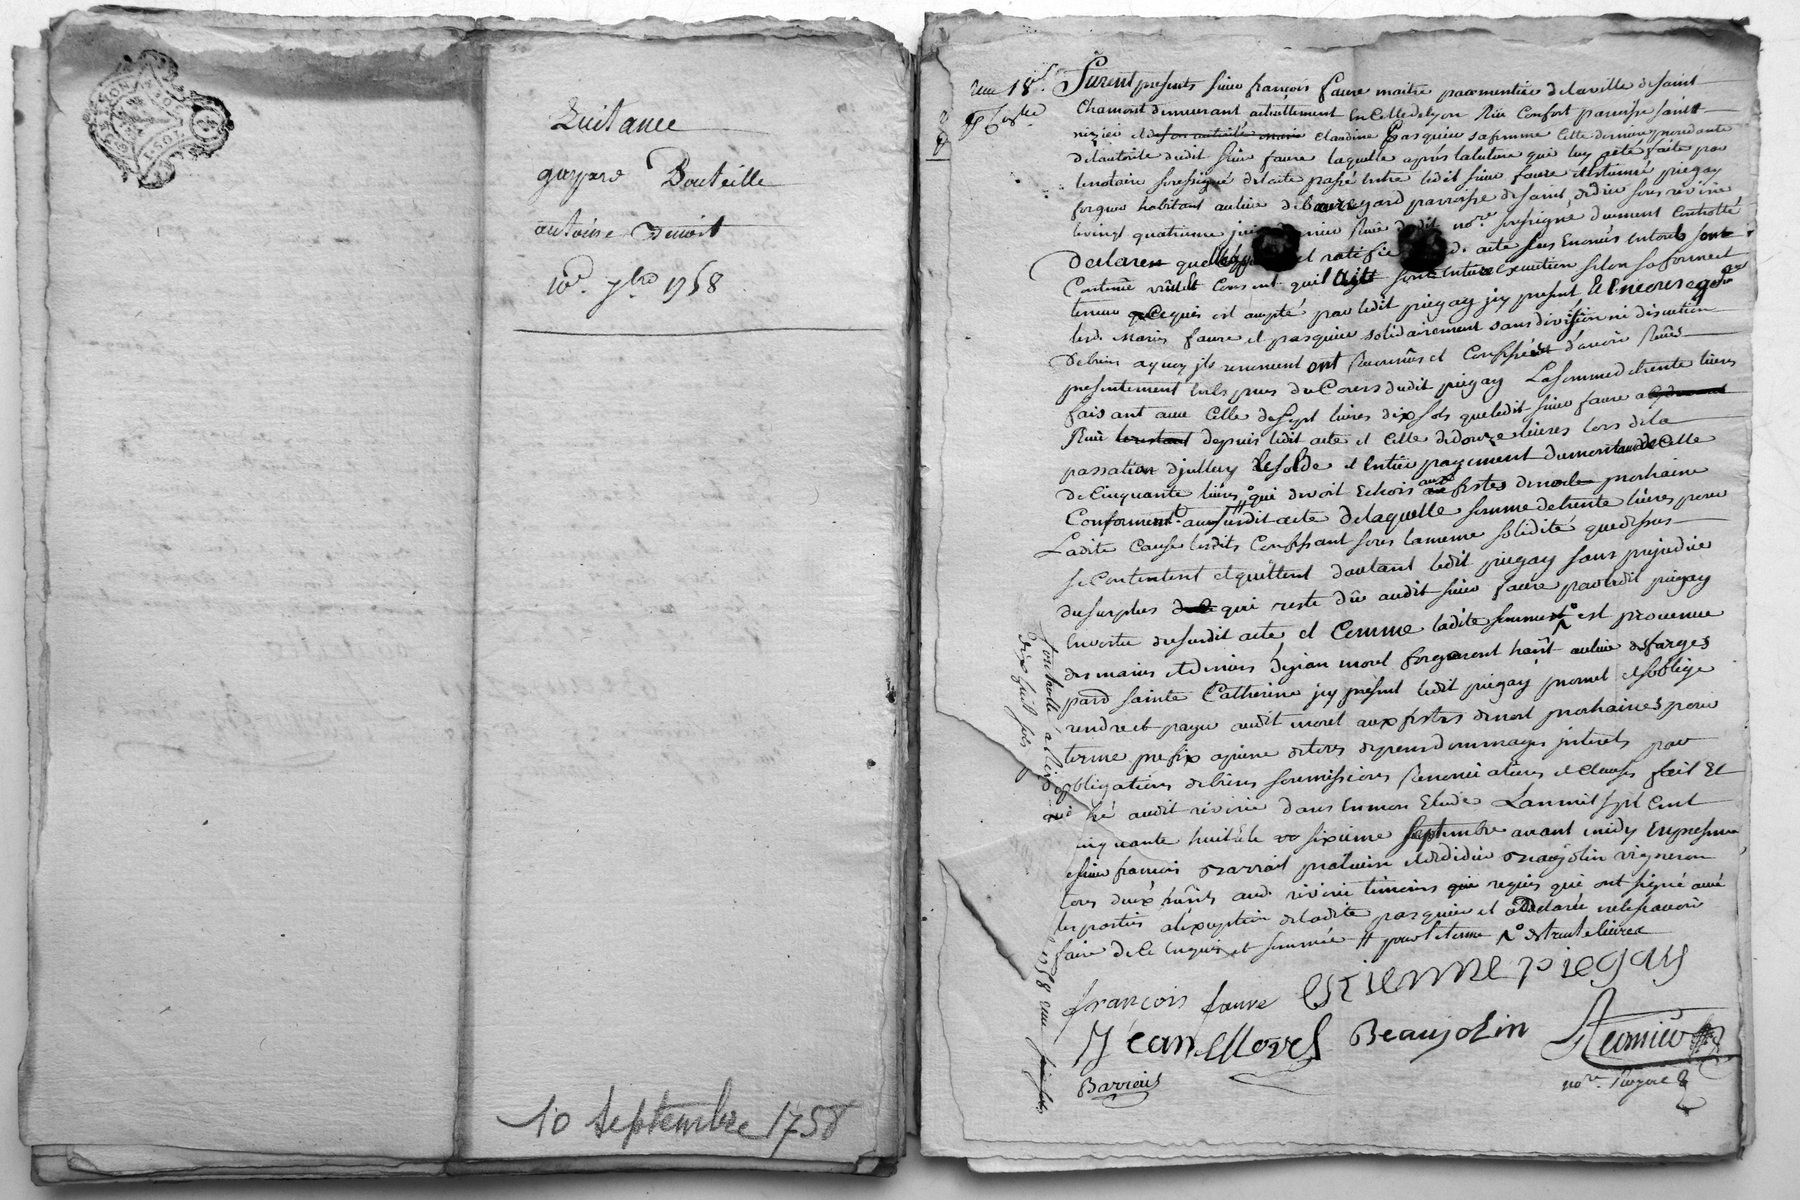 Quitance
gaspard Bouteille
antoine Benoit
10e. 7bre 1758
10 Septembre 1758
Furent présents sieur françois faure maitre passementier de la ville de saint
chamont demeurant actuellement en celle de lyon Rüe Confort paroisse saint
nizier et de son autorité Claudine pasquier sa femme cette derniere procedante
de lautorité dudit sieur faure laquelle aprés lecture qui luy a été faite par
le notaire soussigné de lacte passé entre ledit sieur faure et Estienne piegay
forgeur habitant au lieu de beauregard parroisse de saint didier sous riverie
le vingt quatrieme dernier Reçu dudit nore soussigné duement Controllé
declare et ratifie acte
Contenüe veut et Consent quil aye son entiere execution selon sa forme et
teneur ce qui est accepté par ledit piegay icy present, et encore
lesd. mariés faure et pasquier solidairement sans division ni discution
de biens a quoy ils renoncent ont Reconnus et Confessé davoir Reçus
presentement en espèces du Cours dudit piegay La somme de trente livres
faisant avec celle de sept livres dix sols que ledit sieur faure a
Reçu depuis ledit acte et celle de douze livres lors de la
passation dicelluy le solde et entier payement du montant de celle
de Cinquante livres qui devoit Echoir aux festes de noel prochaine
Conforment. au susdit acte de laquelle somme de trente livres pour
Ladite Cause lesdits Confessant sous la meme solidité que dessus
se contentent et quittent dautant ledit piegay sans prejudice
du surplus qui reste dû audit sieur faure par ledit piegay
en vertu du susdit acte et Comme ladite somme est provenue
des mains et deniers de jean morel forgeur hant au lieu des farges
parr sainte Catherine icy present ledit piegay promet et soblige
rendre et payer audit morel aux festes de noel prochaines pour
terme prefix a peine de tous depens dommages interets par
obligations de biens soumissions Renonciations et clauses fait Et
passé audit riverie dans en mon Etude Lan mil sept cent
cinquante huit Et le sixieme septembre avant midy En presence
de sieur françois Barrois praticien et de didier Beaujolin vigneron
tous deux hants aud. riverie temoins requis qui ont signé avec
les parties a lexception de ladite pasquier et a Declaré ne le sçavoir
faire de ce enquise et sommée # pour le terme No de trente livres
françois faure ESTIENNE PIEGAY
JEan MorEl BEaujolin
Barrois
nore. Royal
Controllé à
dix huit sols
1758